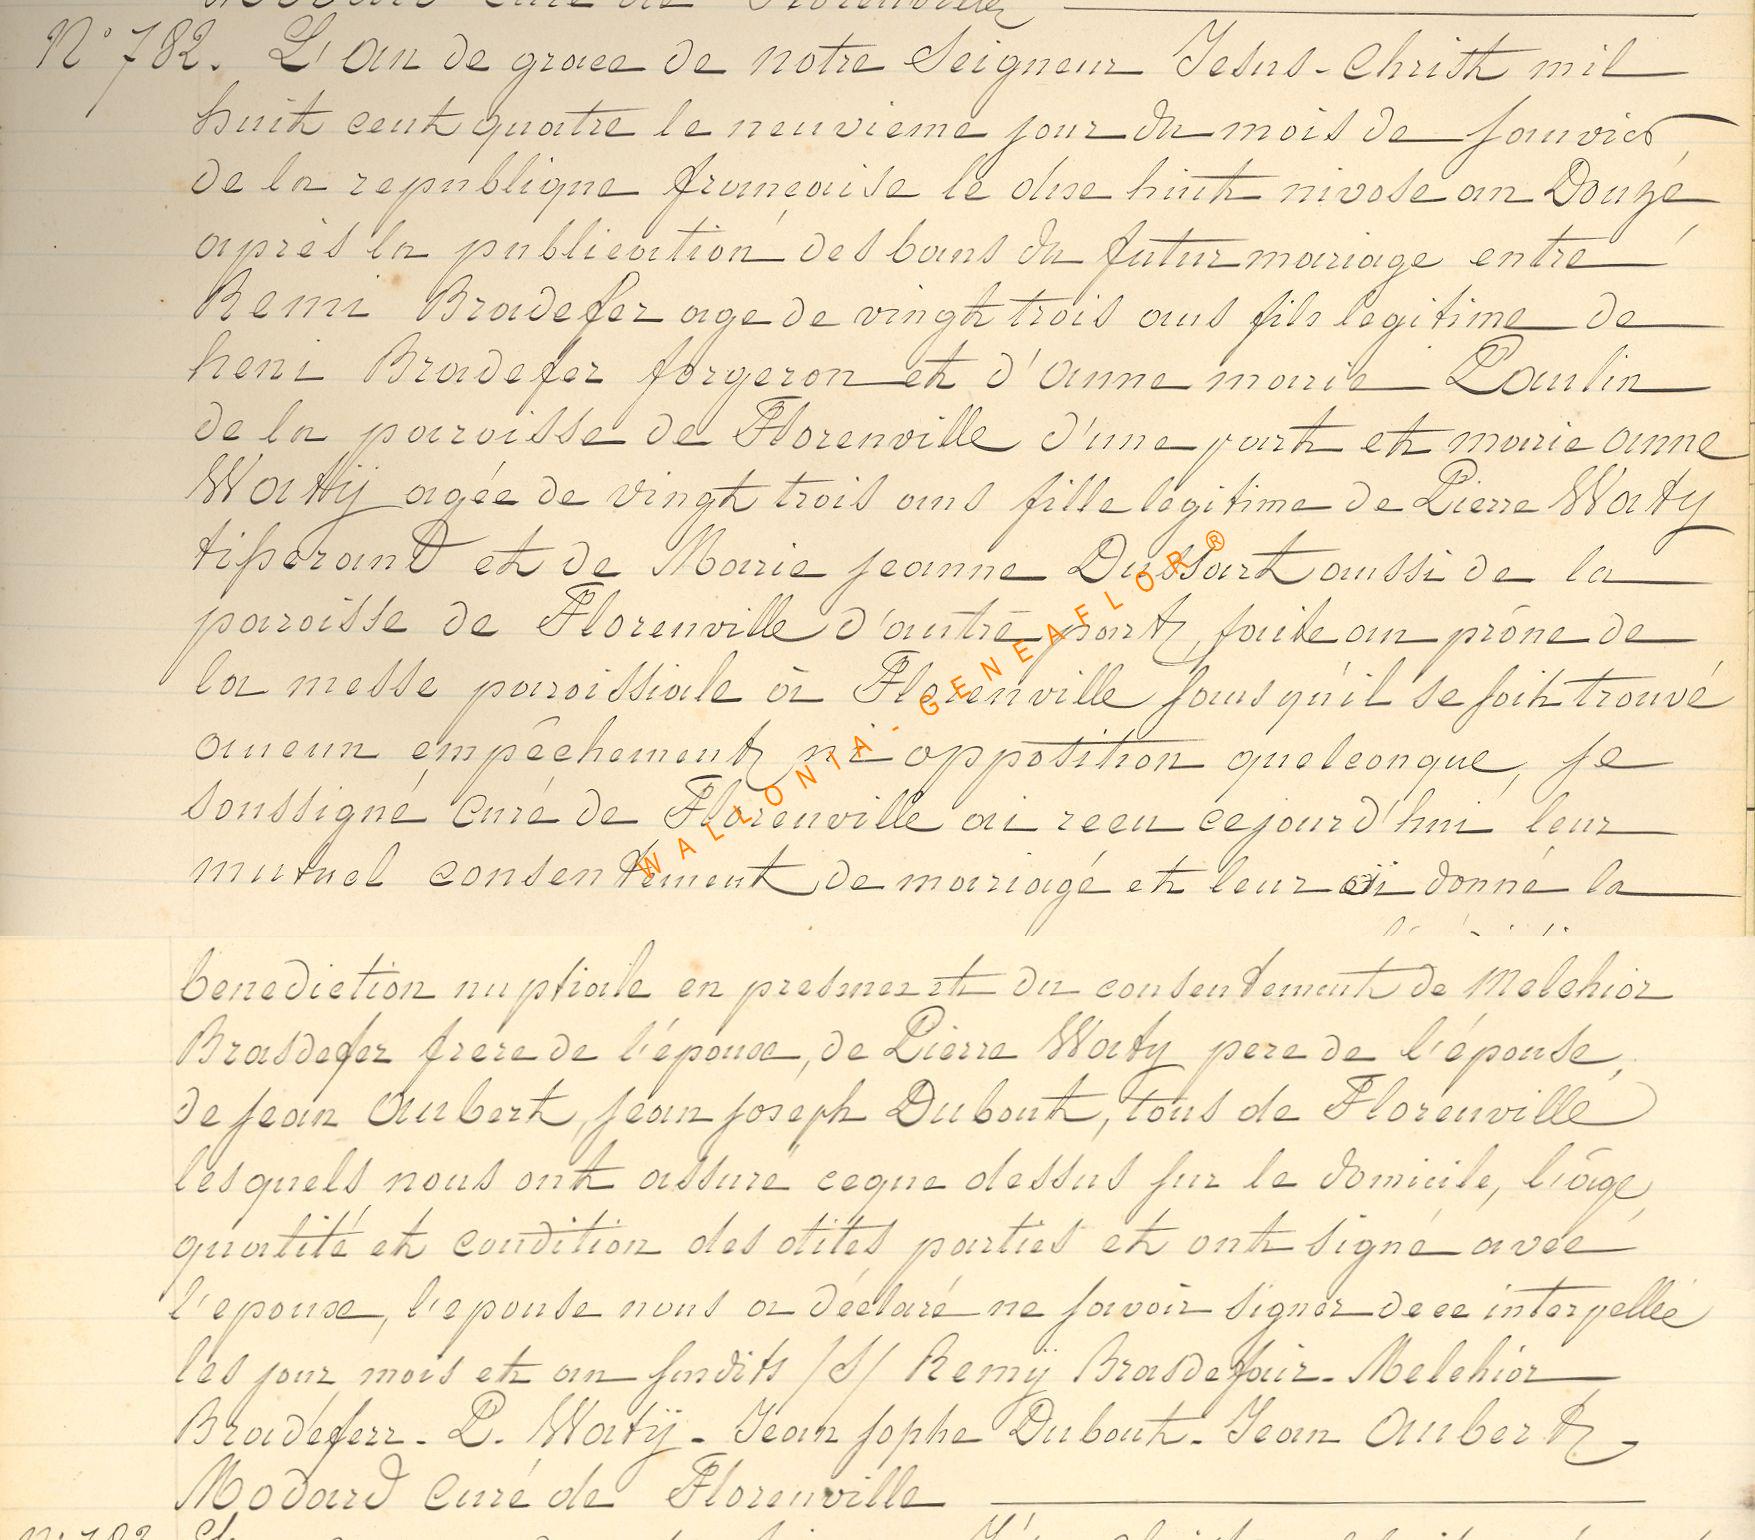 curé de Florenville
N° 782. L'an de grace de notre Seigneur Jesus-Christ mil
huit cent quatre le neuvieme jour du mois de janvier,
de la republique française le dixe huit nivose an Douze
après la publication des bans du futur mariage entre
Remi Bradefer age de vingt trois ans fils legitime de
heni Bradefer forgeron et d'anne marie Paulin
de la paroisse de Florenville d'une part et marie anne
Watij agée de vingt trois ans fille legitime de Pierre Waty
tisserand et de Marie jeanne Dussart aussi de la
paroisse de Florenville d'autre part, faite au prône de
la messe paroissiale à Florenville sans qu'il se soit trouvé
aucun empêchement ni opposition quelconque, je
soussigné curé de Florenville ai recu cejourd'hui leur
mutuel consentement de mariagé et leur ai donné la
benediction nuptiale en et du consentement de Melchior
Brasdefer frere de l'époux, de Pierre Waty pere de l'épouse,
de jean Aubert, jean joseph Dubout, tous de Florenville
lesquels nous ont assuré ceque dessus sur le domicile, l'âge,
qualité et condition des dites parties et ont signé avec
l'epoux, l'epouse nous a déclaré ne savoir signer de ce interpellée
les jour mois et an susdits /S/ Remij Brasdefair - Melchior
Bradeferr - P. Watij - Jean jophe Dubout - Jean Aubert -
Modard Curé de Florenville
N° 783
WALLONIA - GENEAFLOR ®